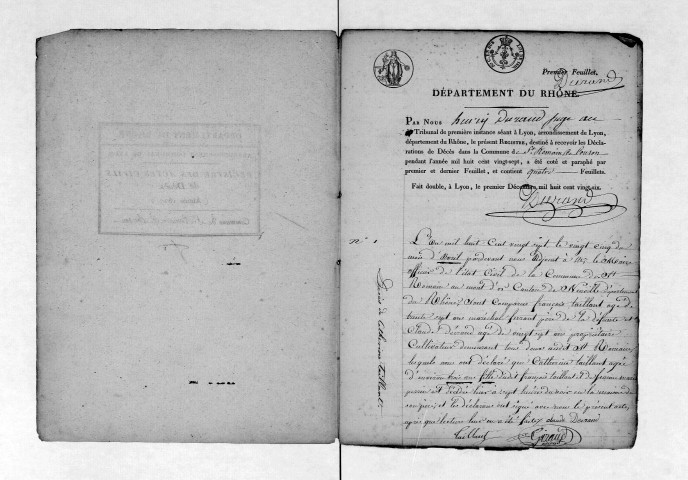 Premier Feuillet.
Durand
DÉPARTEMENT DU RHÔNE.
PAR NOUS henry durand juge au
Tribunal de première instance séant à Lyon, arrondissement de Lyon,
département du Rhône, le présent REGISTRE, destiné à recevoir les Décla-
rations de Décès dans la Commune de St Romain de
pendant l'année mil huit cent vingt-sept, a été coté et paraphé par
premier et dernier Feuillet, et contient quatre Feuillets.
Fait double, à Lyon, le premier Décembre mil huit cent vingt-six.
Durand
N° 1
Décès de Catherine taillant
L'an mil huit Cent vingt sept le vingt cinq du
mois d'avril pardevant nous adjoint à Mr le Maire
officier de l'état Civil de la Commune de St
Romain au mont d'or Canton de Neuville département
du Rhône, Sont Comparus françois taillant agé de
trente sept ans maréchal ferrant père de la défunte et
Claude Durand agé de vingt sept ans propriétaire
Cultivateur demeurant tous deux audit St Romain
lesquels nous ont déclaré que Catherine taillant agée
d'environ trois ans fille dudit françois taillant et de
est décédée hier à sept heures du soir en la
et les déclarans ont signé avec nous le présent acte,
après que lecture leur en a été faite claude Durand
taillant Giraud